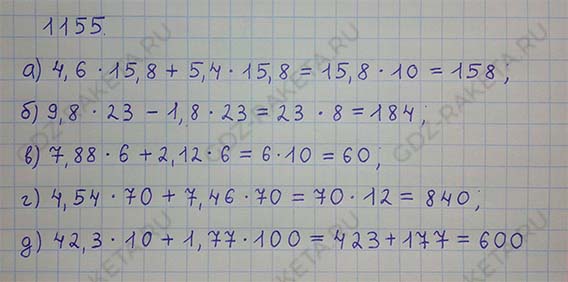 1155.
а) 4,6 · 15,8 + 5,4 · 15,8 = 15,8 · 10 = 158;
б) 9,8 · 23 - 1,8 · 23 = 23 · 8 = 184;
в) 7,88 · 6 + 2,12 · 6 = 6 · 10 = 60;
г) 4,54 · 70 + 7,46 · 70 = 70 · 12 = 840;
д) 42,3 · 10 + 1,77 · 100 = 423 + 177 = 600
GDZ-RAKETA.RU
GDZ-RAKETA.RU